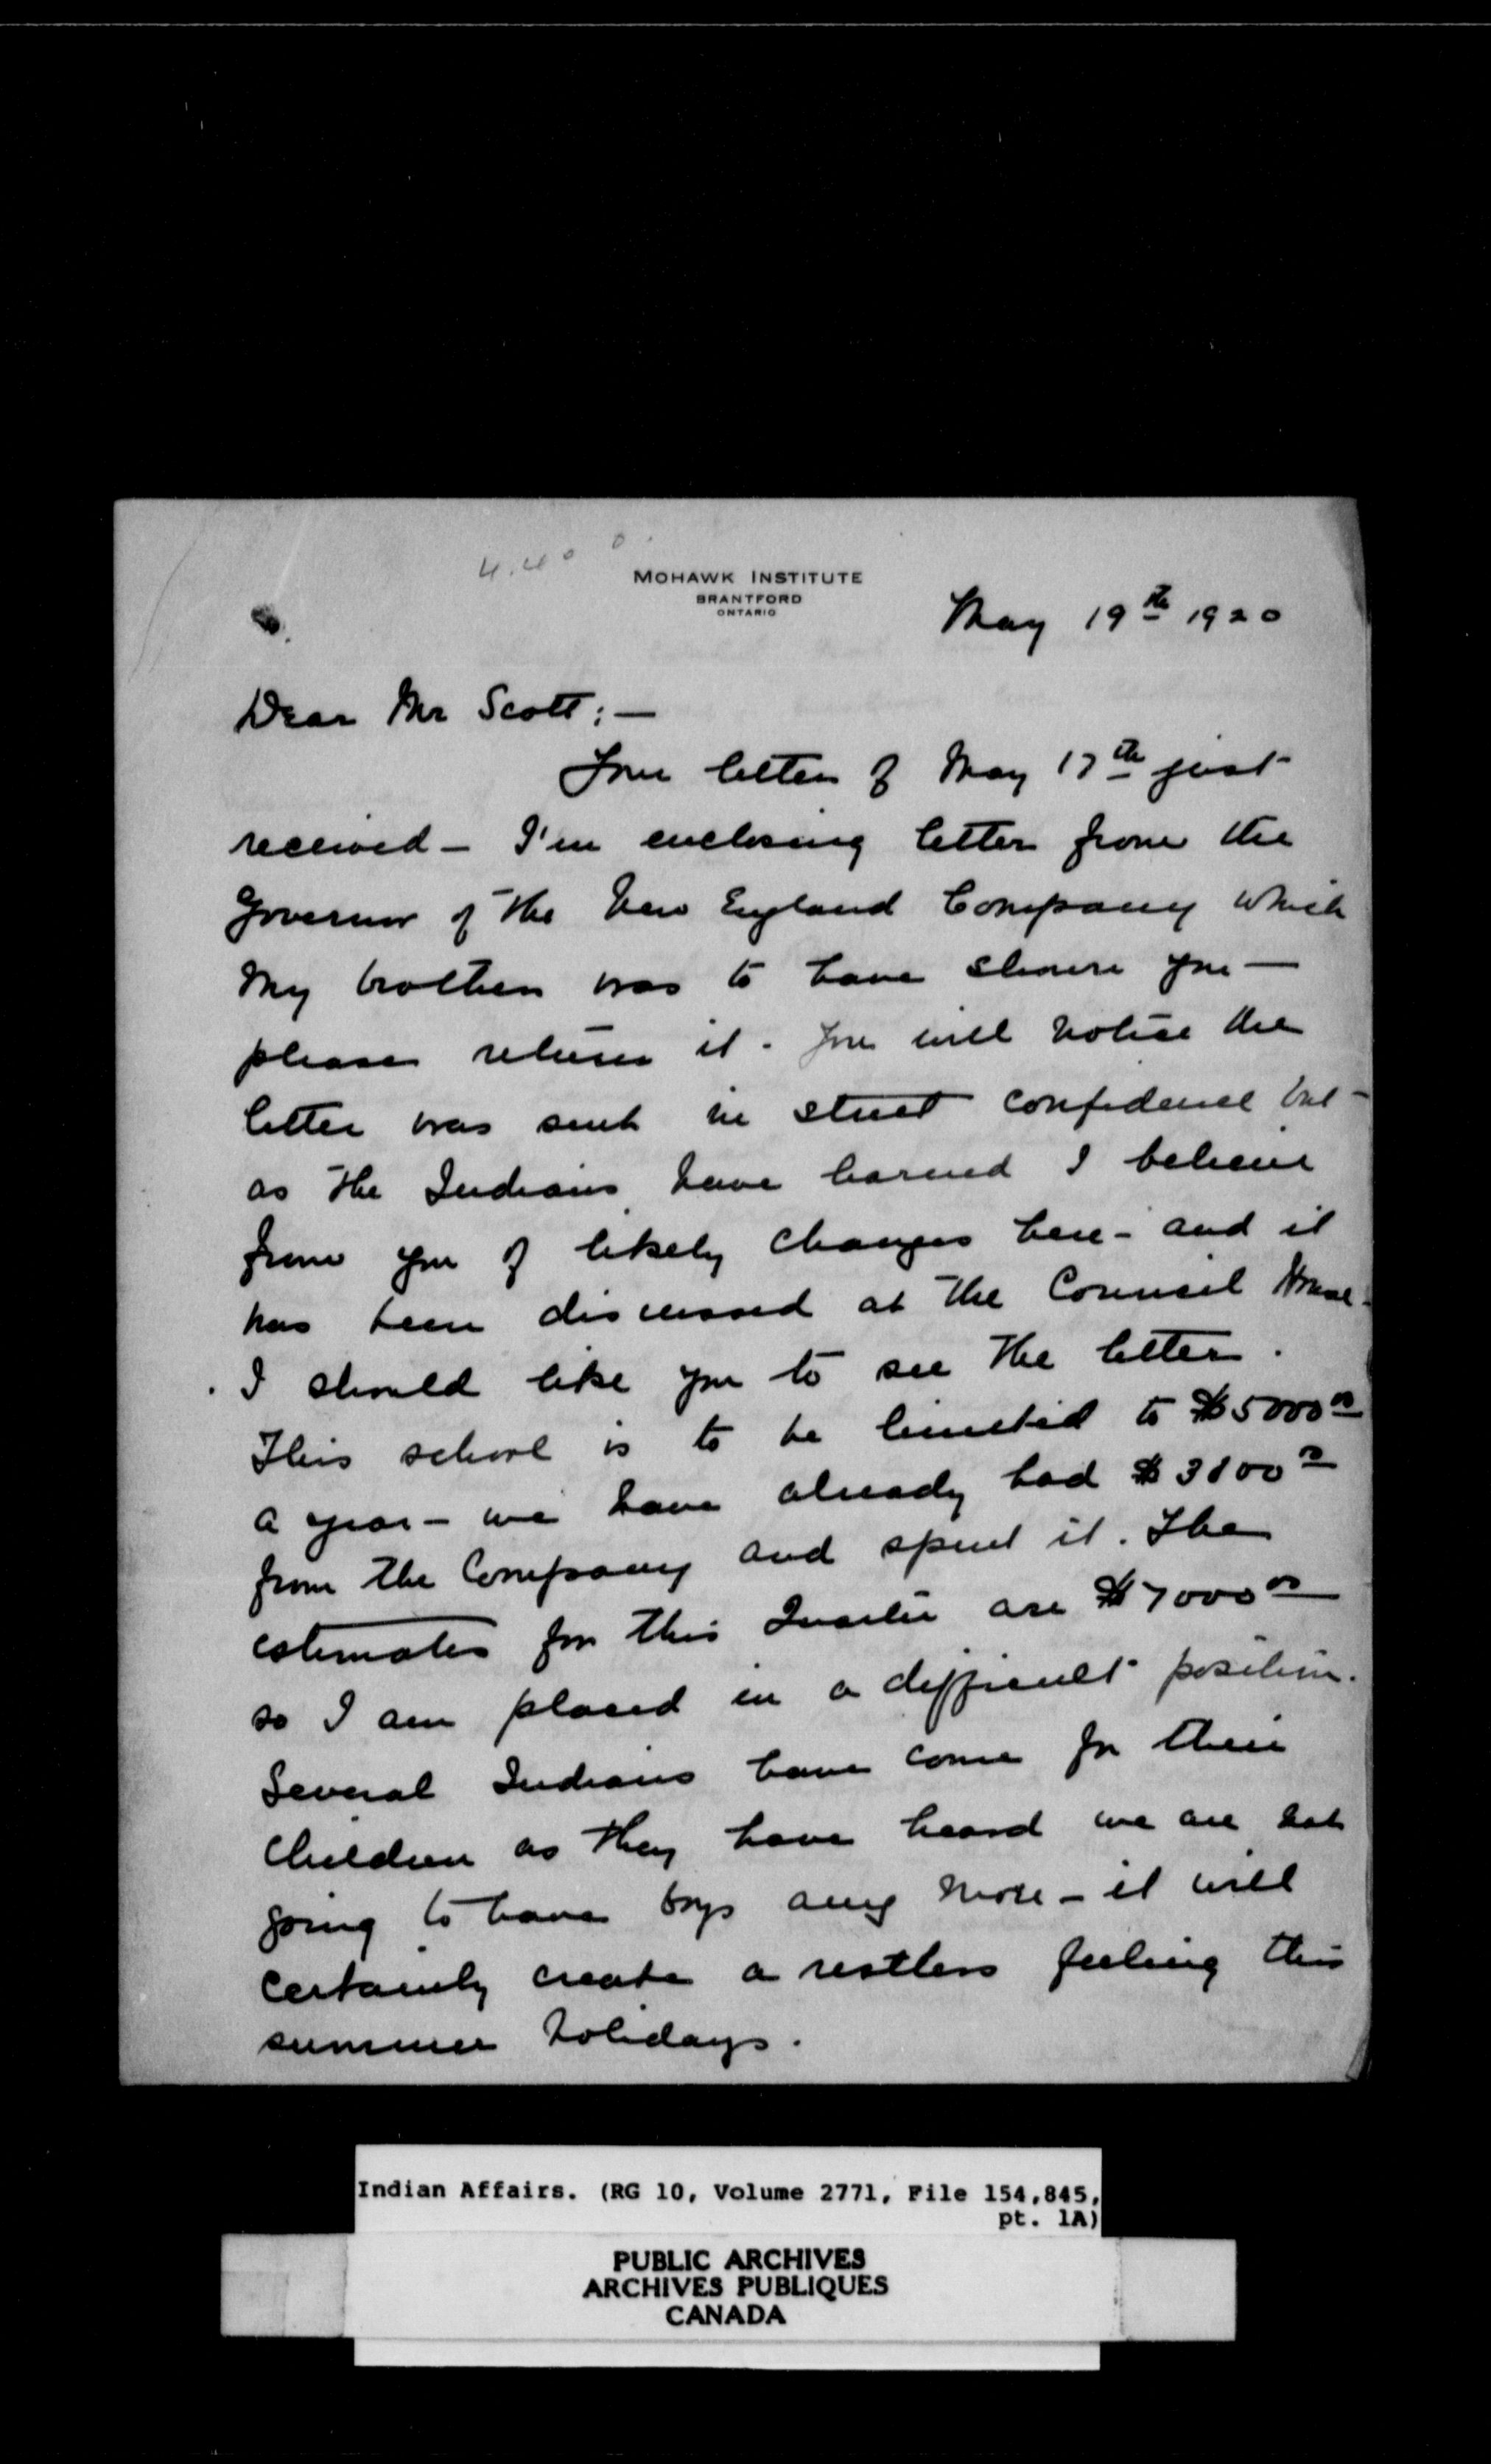 MOHAWK INSTITUTE
BRANTFORD
ONTARIO
May 19th 1920
Dear Mr Scott:—
Your letter of May 17th just
received - I'm enclosing letter from the
Governor of the New England Company which
my brother was to have shown you —
please return it. You will notice the
letter was sent in strict confidence but
as the Indians have learned I believe
from you of likely changes here - and it
has been discussed at the Council House.
I should like you to see the letter.
This school is to be limited to $5000.00
a year - we have already had $3800.00
from the Company and spent it. The
estimates for this Quarter are $7000.00
so I am placed in a difficult position.
Several Indians have come for their
children as they have heard we are not
going to have boys any more - it will
certainly create a restless feeling this
summer holidays.
Indian Affairs. (RG 10, Volume 2771, File 154,845,
pt. 1A)
PUBLIC ARCHIVES
ARCHIVES PUBLIQUES
CANADA